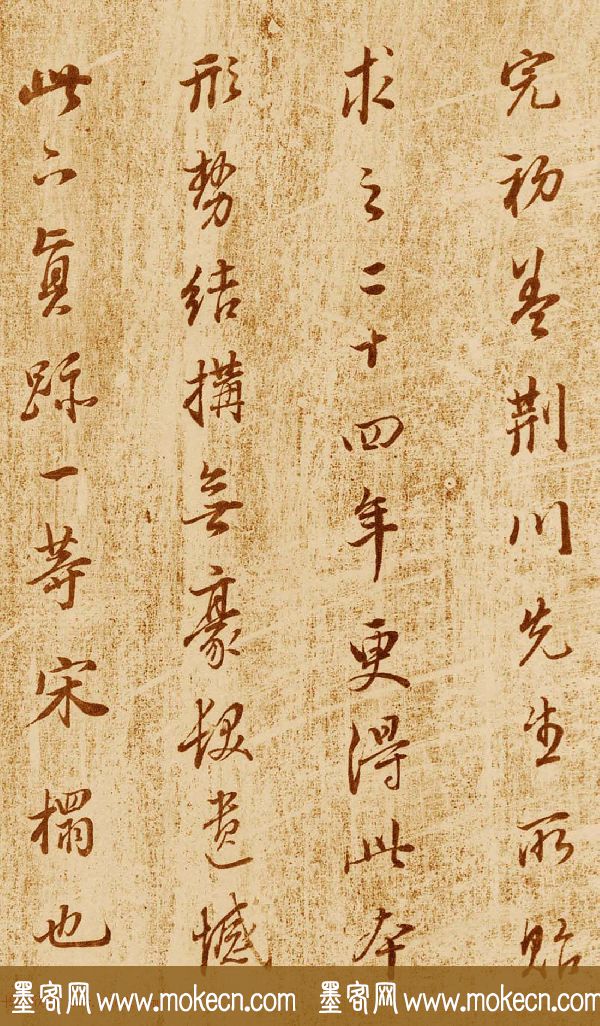 完初盖荆川先生所貽
求之二十四年更得此本
形勢結搆無豪髮遺憾
此下眞跡一等宋榻也
墨客网 www.mokecn.com 墨客网 www.mokecn.com